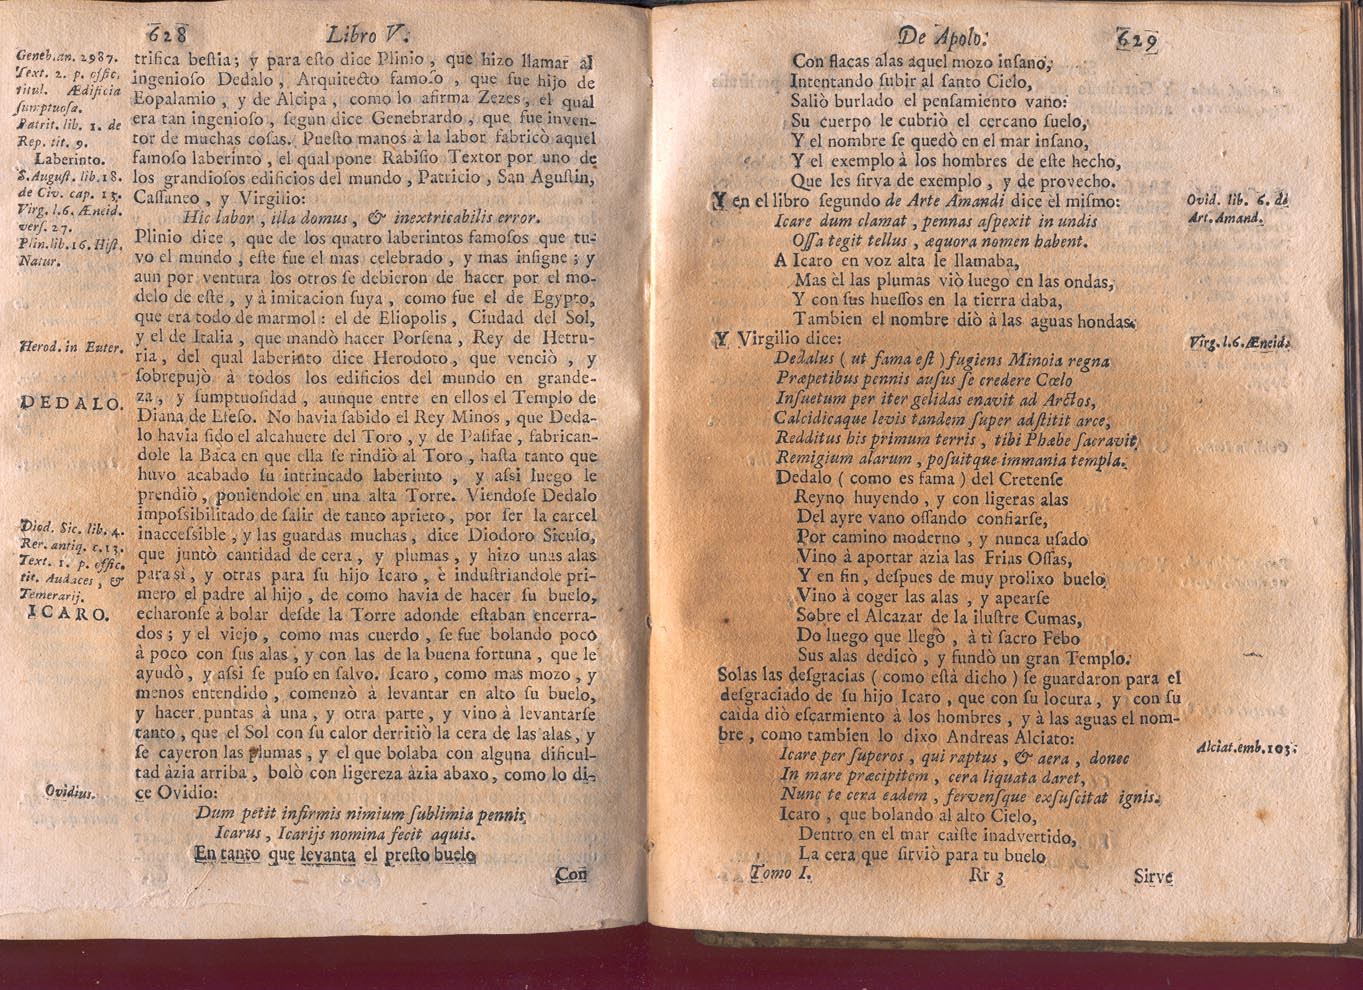 628 Libro V.
Geneb. an. 2987.
Text. 2. p. offic.
titul. Ædificia
sumptuosa.
Patrit. lib. 1. de
Rep. tit. 9.
Laberinto.
S. August. lib. 18.
de Civ. cap. 13.
Virg. l. 6. Æneid.
vers. 27.
Plin. lib. 16. Hist.
Natur.
Herod. in Euter.
DEDALO.
Diod. Sic. lib. 4.
Rer. antiq. c. 13.
Text. 1. p. offic.
tit. Audaces, &
Temerarij.
ICARO.
Ovidius.
trifica bestia; y para esto dice Plinio, que hizo llamar al
ingenioso Dedalo, Arquitecto famoso, que fue hijo de
Eopalamio, y de Alcipa, como lo afirma Zezes, el qual
era tan ingenioso, segun dice Genebrardo, que fue inven-
tor de muchas cosas. Puesto manos à la labor fabricò aquel
famoso laberinto, el qual pone Rabisio Textor por uno de
los grandiosos edificios del mundo, Patricio, San Agustin,
Cassaneo, y Virgilio:
Hic labor, illa domus, & inextricabilis error.
Plinio dice, que de los quatro laberintos famosos que tu-
vo el mundo, este fue el mas celebrado, y mas insigne; y
aun por ventura los otros se debieron de hacer por el mo-
delo de este, y à imitacion suya, como fue el de Egypto,
que era todo de marmol: el de Eliopolis, Ciudad del Sol,
y el de Italia, que mandò hacer Porsena, Rey de Hetru-
ria, del qual laberinto dice Herodoto, que venciò, y
sobrepujò à todos los edificios del mundo en grande-
za, y sumptuosidad, aunque entre en ellos el Templo de
Diana de Efeso. No havia sabido el Rey Minos, que Deda-
lo havia sido el alcahuete del Toro, y de Pasifae, fabrican-
dole la Baca en que ella se rindiò al Toro, hasta tanto que
huvo acabado su intrincado laberinto, y assi luego le
prendiò, poniendole en una alta Torre. Viendose Dedalo
impossibilitado de salir de tanto aprieto, por ser la carcel
inaccessible, y las guardas muchas, dice Diodoro Siculo,
que juntò cantidad de cera, y plumas, y hizo unas alas
para sì, y otras para su hijo Icaro, è industriandole pri-
mero el padre al hijo, de como havia de hacer su buelo,
echaronse à bolar desde la Torre adonde estaban encerra-
dos; y el viejo, como mas cuerdo, se fue bolando poco
à poco con sus alas, y con las de la buena fortuna, que le
ayudò, y assi se puso en salvo. Icaro, como mas mozo, y
menos entendido, comenzò à levantar en alto su buelo,
y hacer puntas à una, y otra parte, y vino à levantarse
tanto, que el Sol con su calor derritiò la cera de las alas, y
se cayeron las plumas, y el que bolaba con alguna dificul-
tad àzia arriba, bolò con ligereza àzia abaxo, como lo di-
ce Ovidio:
Dum petit infirmis nimium sublimia pennis
Icarus, Icarijs nomina fecit aquis.
En tanto que levanta el presto buelo
Con
De Apolo. 629
Con flacas alas aquel mozo insano,
Intentando subir al santo Cielo,
Saliò burlado el pensamiento vano:
Su cuerpo le cubriò el cercano suelo,
Y el nombre se quedò en el mar insano,
Y el exemplo à los hombres de este hecho,
Que les sirva de exemplo, y de provecho.
Y en el libro segundo de Arte Amandi dice èl mismo:
Icare dum clamat, pennas aspexit in undis
Ossa tegit tellus, æquora nomen habent.
A Icaro en voz alta le llamaba,
Mas èl las plumas viò luego en las ondas,
Y con sus huessos en la tierra daba,
Tambien el nombre diò à las aguas hondas.
Y Virgilio dice:
Dedalus (ut fama est) fugiens Minoia regna
Præpetibus pennis ausus se credere Cœlo
Insuetum per iter gelidas enavit ad Arctos,
Calcidicaque levis tandem super adstitit arce,
Redditus his primum terris, tibi Phœbe sacravit
Remigium alarum, posuitque immania templa.
Dedalo (como es fama) del Cretense
Reyno huyendo, y con ligeras alas
Del ayre vano ossando confiarse,
Por camino moderno, y nunca usado
Vino à aportar àzia las Frias Ossas,
Y en fin, despues de muy prolixo buelo
Vino à coger las alas, y apearse
Sobre el Alcazar de la ilustre Cumas,
Do luego que llegò, à tì sacro Febo
Sus alas dedicò, y fundò un gran Templo.
Solas las desgracias (como està dicho) se guardaron para el
desgraciado de su hijo Icaro, que con su locura, y con su
caìda diò escarmiento à los hombres, y à las aguas el nom-
bre, como tambien lo dixo Andreas Alciato:
Icare per superos, qui raptus, & aera, donec
In mare præcipitem, cera liquata daret,
Nunc te cera eadem, fervensque exsuscitat ignis.
Icaro, que bolando al alto Cielo,
Dentro en el mar caiste inadvertido,
La cera que sirviò para tu buelo
Tomo I. Rr 3 Sirve
Ovid. lib. 6. de
Art. Amand.
Virg. l. 6. Æneid.
Alciat. emb. 103.